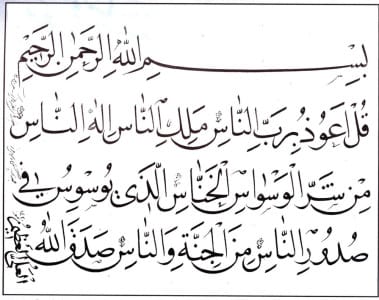 بِسْمِ اللهِ الرَّحْمٰنِ الرَّحِيمِ
قُلْ اَعُوذُ بِرَبِّ النَّاسِ مَلِكِ النَّاسِ اِلٰهِ النَّاسِ
مِنْ شَرِّ الْوَسْوَاسِ الْخَنَّاسِ الَّذِي يُوَسْوِسُ فِي
صُدُورِ النَّاسِ مِنَ الْجِنَّةِ وَالنَّاسِ صَدَقَ اللهُ
العلي العظيم